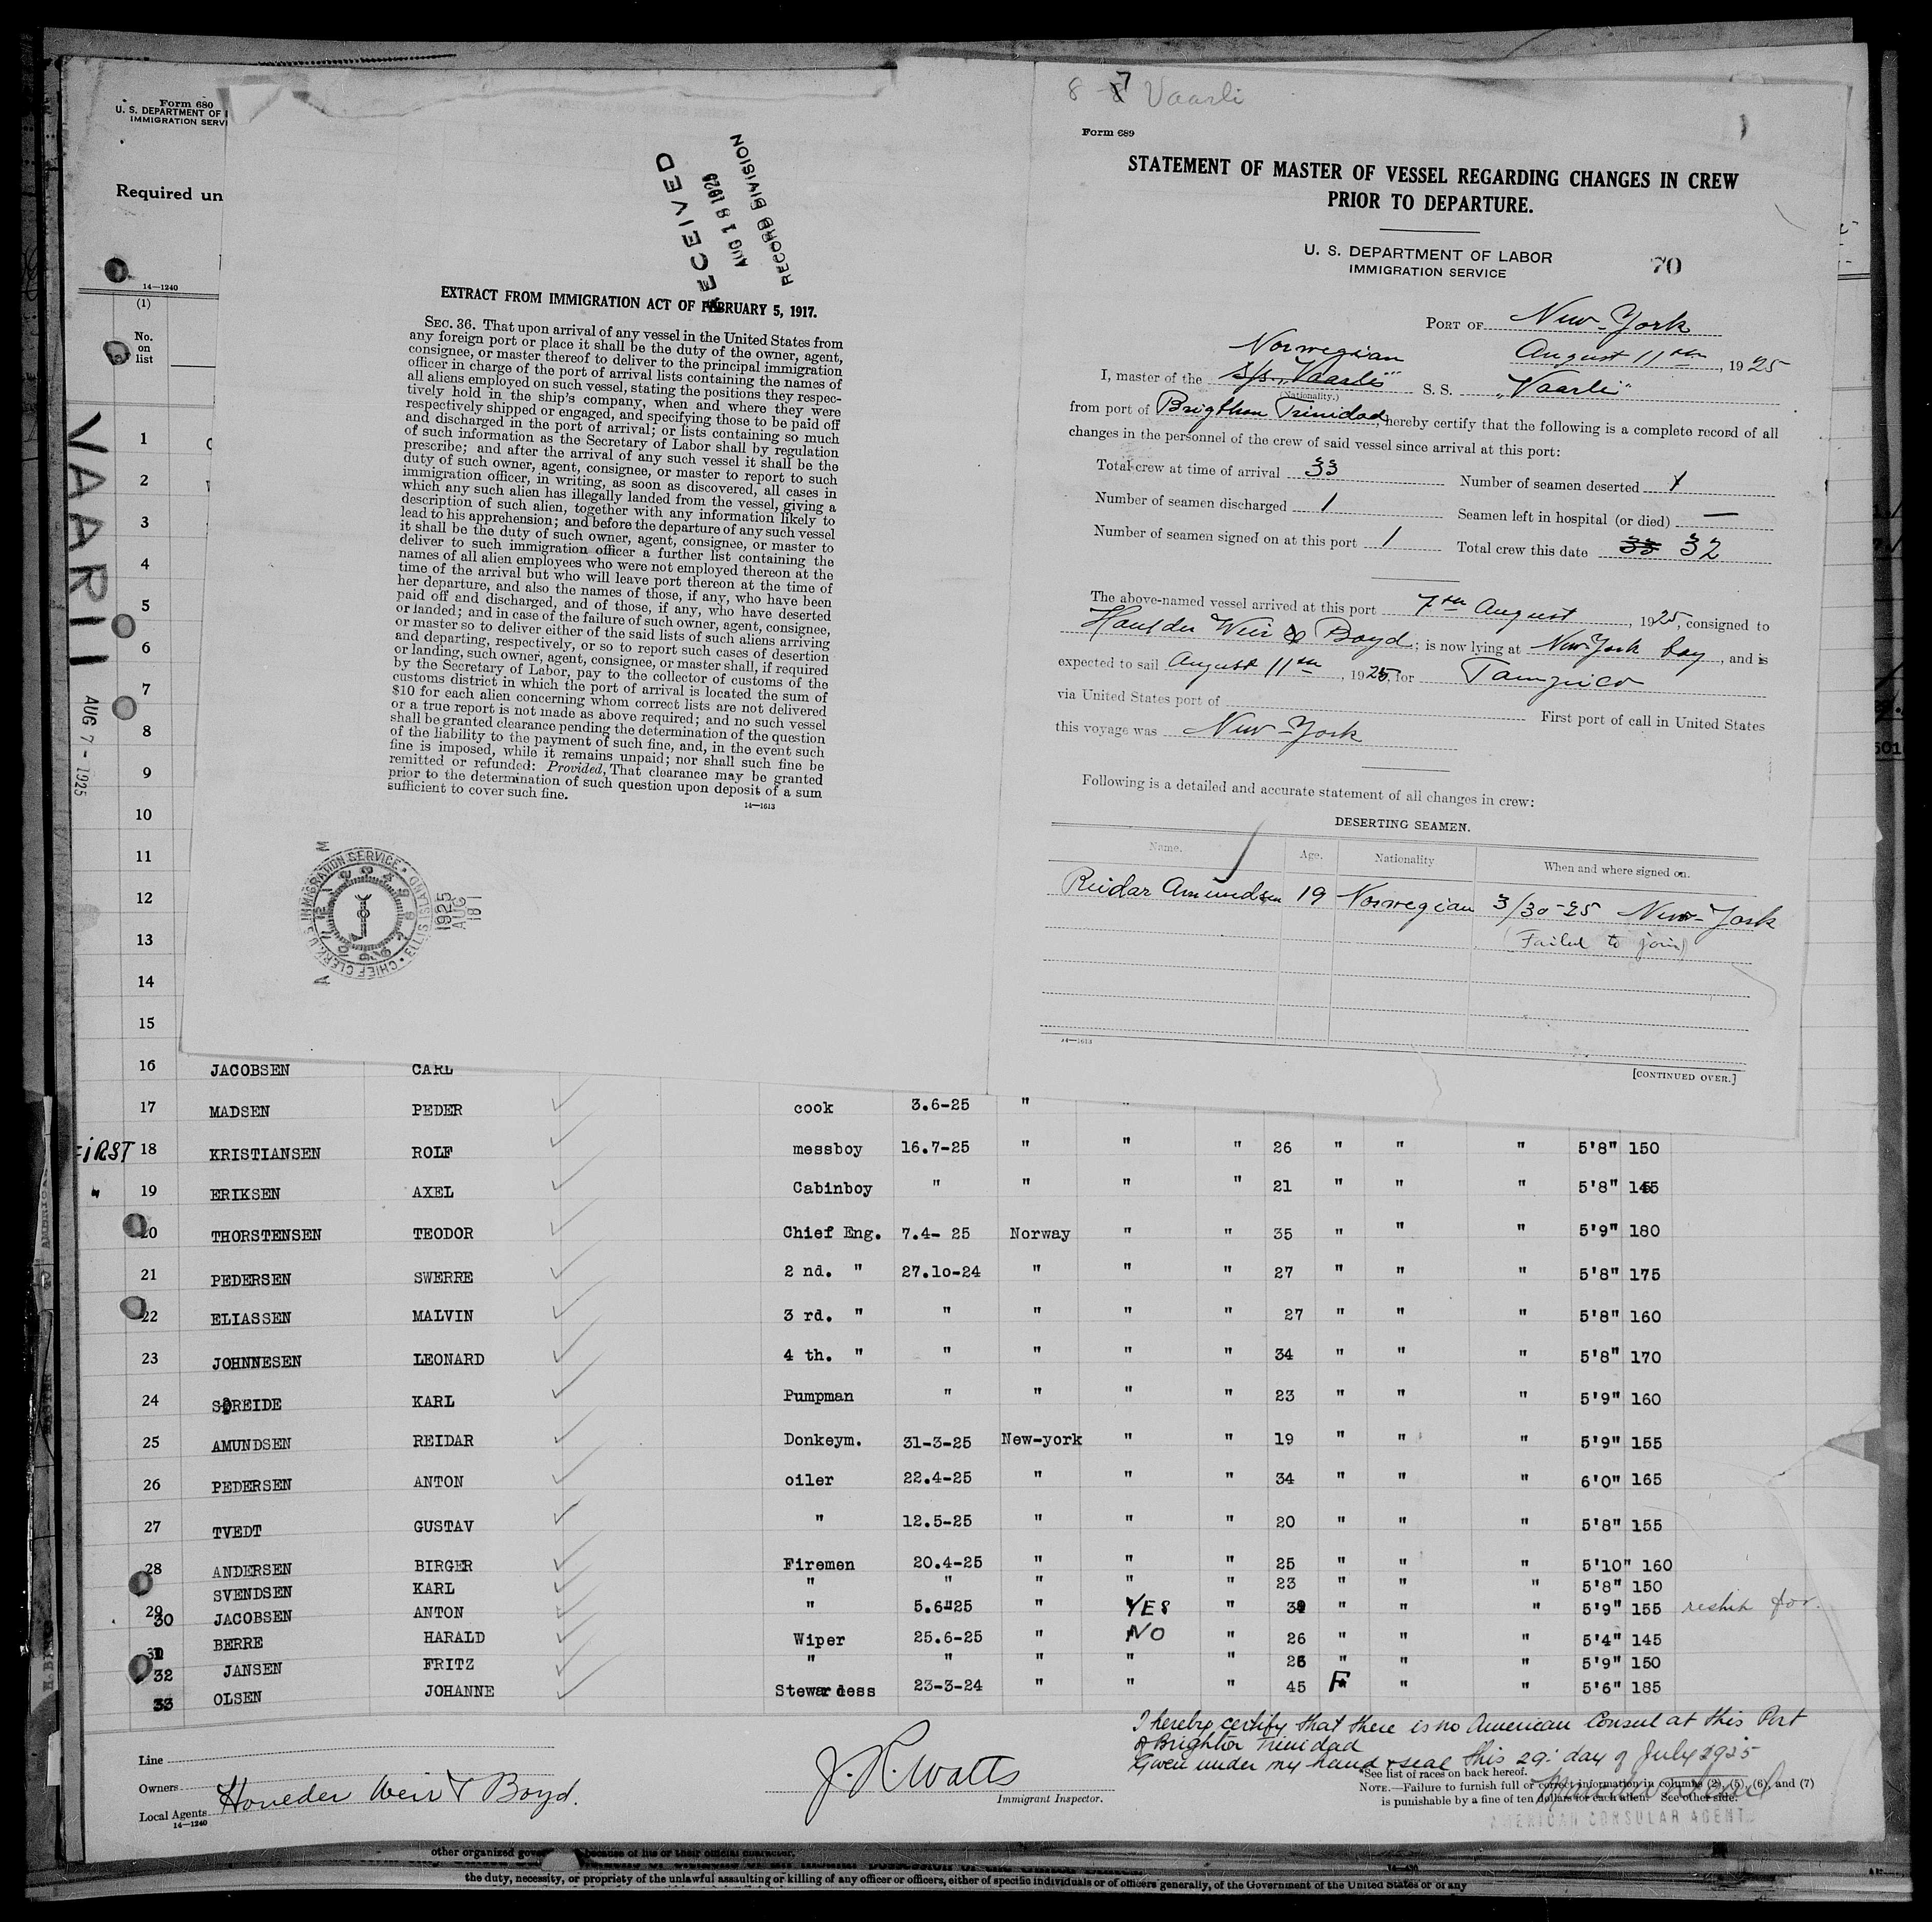 Form 680
U. S. DEPARTMENT OF
IMMIGRATION SERV
Required un
14—1240
(1)
No.
on
list
VAARLI
AUG 7 - 1925
1
2
3
4
5
6
7
8
9
10
11
12
13
14
15
RECEIVED
AUG 18 1925
RECORD DIVISION
EXTRACT FROM IMMIGRATION ACT OF FEBRUARY 5, 1917.
SEC. 36. That upon arrival of any vessel in the United States from
any foreign port or place it shall be the duty of the owner, agent,
consignee, or master thereof to deliver to the principal immigration
officer in charge of the port of arrival lists containing the names of
all aliens employed on such vessel, stating the positions they respec-
tively hold in the ship's company, when and where they were
respectively shipped or engaged, and specifying those to be paid off
and discharged in the port of arrival; or lists containing so much
of such information as the Secretary of Labor shall by regulation
prescribe; and after the arrival of any such vessel it shall be the
duty of such owner, agent, consignee, or master to report to such
immigration officer, in writing, as soon as discovered, all cases in
which any such alien has illegally landed from the vessel, giving a
description of such alien, together with any information likely to
lead to his apprehension; and before the departure of any such vessel
it shall be the duty of such owner, agent, consignee, or master to
deliver to such immigration officer a further list containing the
names of all alien employees who were not employed thereon at the
time of the arrival but who will leave port thereon at the time of
her departure, and also the names of those, if any, who have been
paid off and discharged, and of those, if any, who have deserted
or landed; and in case of the failure of such owner, agent, consignee,
or master so to deliver either of the said lists of such aliens arriving
and departing, respectively, or so to report such cases of desertion
or landing, such owner, agent, consignee, or master shall, if required
by the Secretary of Labor, pay to the collector of customs of the
customs district in which the port of arrival is located the sum of
$10 for each alien concerning whom correct lists are not delivered
or a true report is not made as above required; and no such vessel
shall be granted clearance pending the determination of the question
of the liability to the payment of such fine, and, in the event such
fine is imposed, while it remains unpaid; nor shall such fine be
remitted or refunded: Provided, That clearance may be granted
prior to the determination of such question upon deposit of a sum
sufficient to cover such fine.
14—1613
CHIEF CLERK, U. S. IMMIGRATION SERVICE · ELLIS ISLAND
1925
AUG
18 1
8 7 Vaarli
Form 689
STATEMENT OF MASTER OF VESSEL REGARDING CHANGES IN CREW
PRIOR TO DEPARTURE.
U. S. DEPARTMENT OF LABOR
IMMIGRATION SERVICE
70
PORT OF New-York
August 11th, 1925
Norwegian
I, master of the S/S. "Vaarli" S. S. "Vaarli"
(Nationality.)
from port of Brigthon Trinidad, hereby certify that the following is a complete record of all
changes in the personnel of the crew of said vessel since arrival at this port:
Total crew at time of arrival 33 Number of seamen deserted 1
Number of seamen discharged 1 Seamen left in hospital (or died) —
Number of seamen signed on at this port 1 Total crew this date 33 32
The above-named vessel arrived at this port 7th August, 1925, consigned to
Houlder Weir & Boyd; is now lying at New-York bay, and is
expected to sail August 11th, 1925, for Tampico
via United States port of First port of call in United States
this voyage was New-York
Following is a detailed and accurate statement of all changes in crew:
DESERTING SEAMEN.
Name. Age. Nationality When and where signed on.
Reidar Amundsen 19 Norwegian 3/30-25 New-York
(Failed to join)
14—1613
[CONTINUED OVER.]
16 JACOBSEN CARL
17 MADSEN PEDER cook 3.6-25 "
FIRST 18 KRISTIANSEN ROLF messboy 16.7-25 " " " 26 " " " 5'8" 150
" 19 ERIKSEN AXEL Cabinboy " " " " 21 " " " 5'8" 145
20 THORSTENSEN TEODOR Chief Eng. 7.4- 25 Norway " " 35 " " " 5'9" 180
21 PEDERSEN SWERRE 2 nd. " 27.10-24 " " " 27 " " " 5'8" 175
22 ELIASSEN MALVIN 3 rd. " " " " " 27 " " " 5'8" 160
23 JOHNNESEN LEONARD 4 th. " " " " " 34 " " " 5'8" 170
24 SØREIDE KARL Pumpman " " " " 23 " " " 5'9" 160
25 AMUNDSEN REIDAR Donkeym. 31-3-25 New-york " " 19 " " " 5'9" 155
26 PEDERSEN ANTON oiler 22.4-25 " " " 34 " " " 6'0" 165
27 TVEDT GUSTAV " 12.5-25 " " " 20 " " " 5'8" 155
28 ANDERSEN BIRGER Firemen 20.4-25 " " " 25 " " " 5'10" 160
29 SVENDSEN KARL " " " " " 23 " " " 5'8" 150
30 JACOBSEN ANTON " 5.6-25 " YES " 39 " " " 5'9" 155
31 BERRE HARALD Wiper 25.6-25 " NO " 26 " " " 5'4" 145
32 JANSEN FRITZ " " " " " 26 " " " 5'9" 150
33 OLSEN JOHANNE Stewardess 23-3-24 " " " 45 F " " 5'6" 185
I hereby certify that there is no American Consul at this Port
of Brighton Trinidad
Given under my hand & seal this 29: day of July 1925
Line
Owners
Local Agents Houeder Weir & Boyd.
14—1240
J. R. Watts
Immigrant Inspector.
*See list of races on back hereof.
NOTE.—Failure to furnish full or correct information in columns (2), (5), (6), and (7)
is punishable by a fine of ten dollars for each alien. See other side.
AMERICAN CONSULAR AGENT
other organized gove because of his or their official character.
the duty, necessity, or propriety of the unlawful assaulting or killing of any officer or officers, either of specific individuals or of officers generally, of the Government of the United States or of any